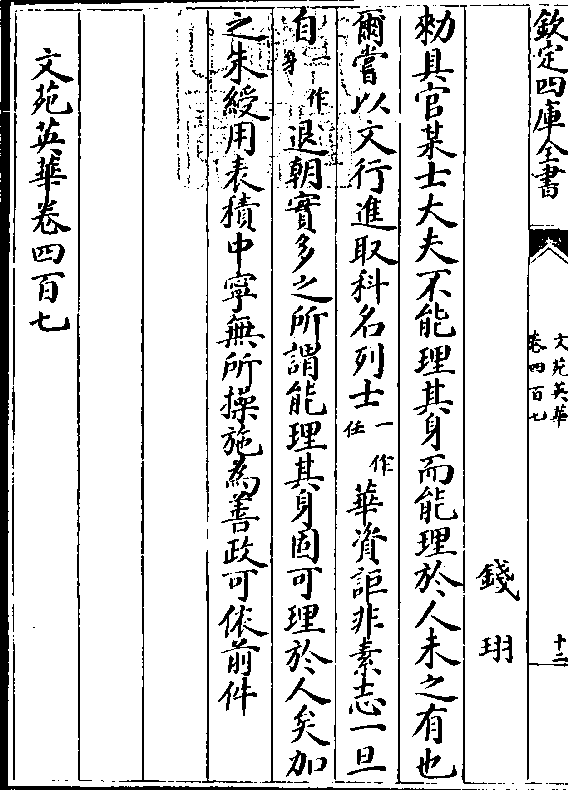 欽定四庫全書
文苑英華
卷四百七
十二
錢珝
勑具官某士大夫不能理其身而能理於人未之有也
爾嘗以文行進取科名列士一作仕華資詎非素志一旦
自一作身退朝實多之所謂能理其身固可理於人矣加
之朱綬用表積中寧無所操施為善政可依前件
文苑英華卷四百七